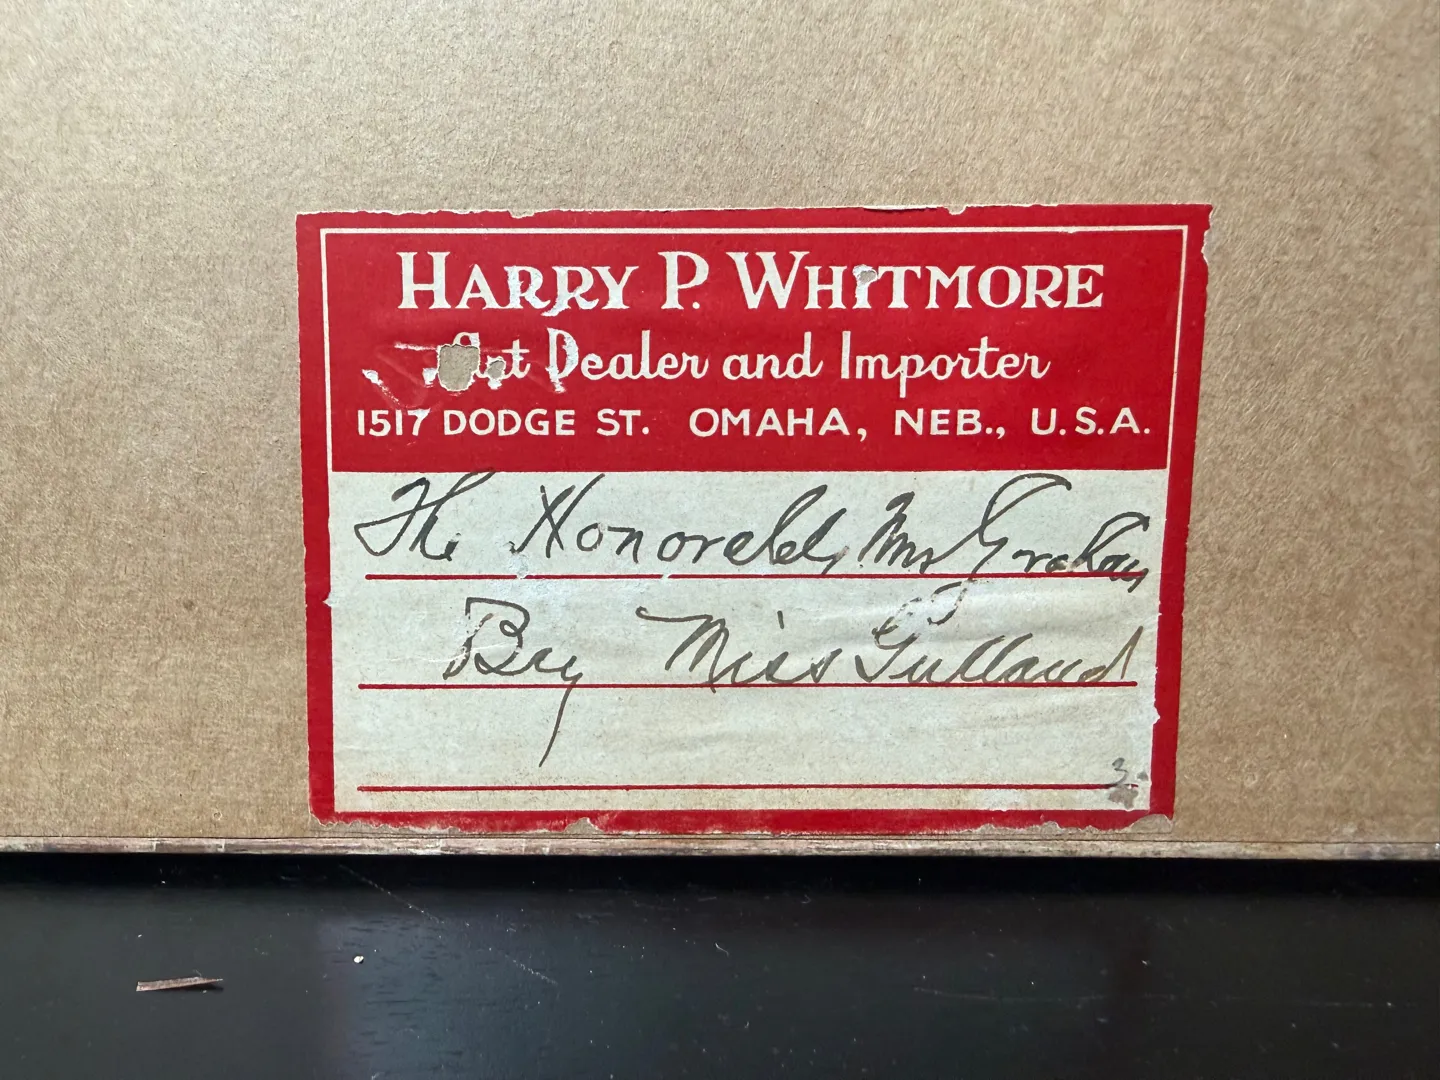 HARRY P. WHITMORE
Art Dealer and Importer
1517 DODGE ST. OMAHA, NEB., U.S.A.
The Honorable, Mrs Graham
By Miss Gulland
3